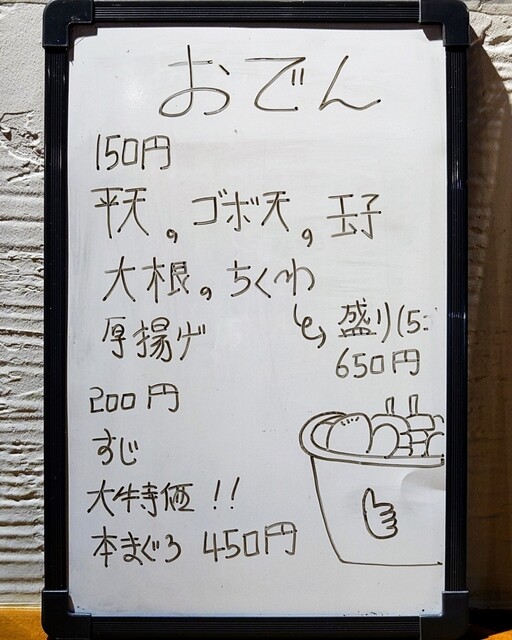 おでん
150円
平天。ゴボ天。玉子
大根。ちくわ
厚揚げ
と、盛り(5
650円
200円
すじ
大特価!!
本まぐろ 450円